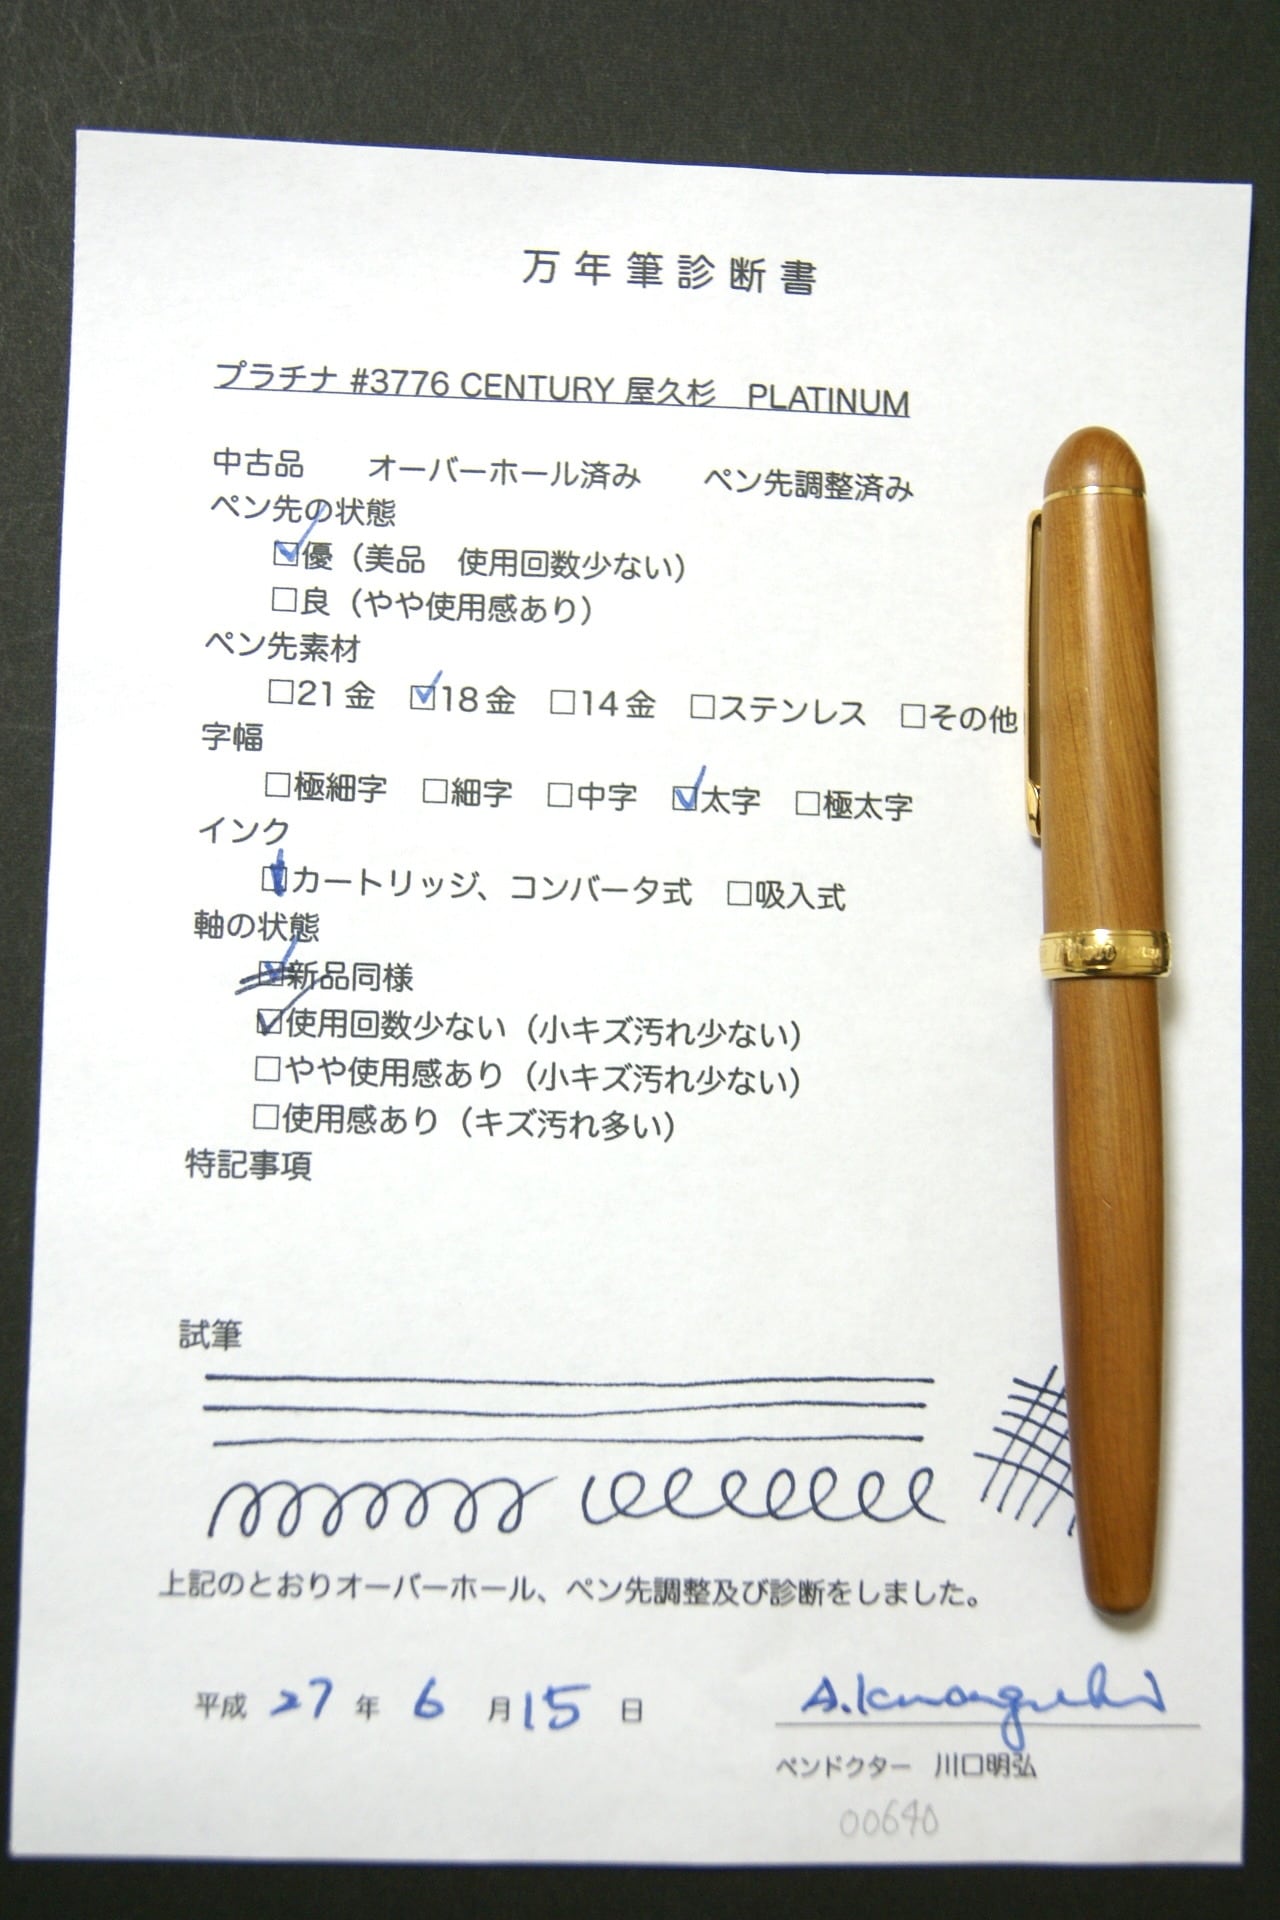 万年筆診断書
プラチナ #3776 CENTURY 屋久杉　PLATINUM
中古品　オーバーホール済み　ペン先調整済み
ペン先の状態
☑優（美品　使用回数少ない）
□良（やや使用感あり）
ペン先素材
□21金　☑18金　□14金　□ステンレス　□その他
字幅
□極細字　□細字　□中字　☑太字　□極太字
インク
☑カートリッジ、コンバータ式　□吸入式
軸の状態
☑新品同様
☑使用回数少ない（小キズ汚れ少ない）
□やや使用感あり（小キズ汚れ少ない）
□使用感あり（キズ汚れ多い）
特記事項
試筆
上記のとおりオーバーホール、ペン先調整及び診断をしました。
平成 27 年 6 月 15 日
A.Kawaguchi
ペンドクター　川口明弘
00640